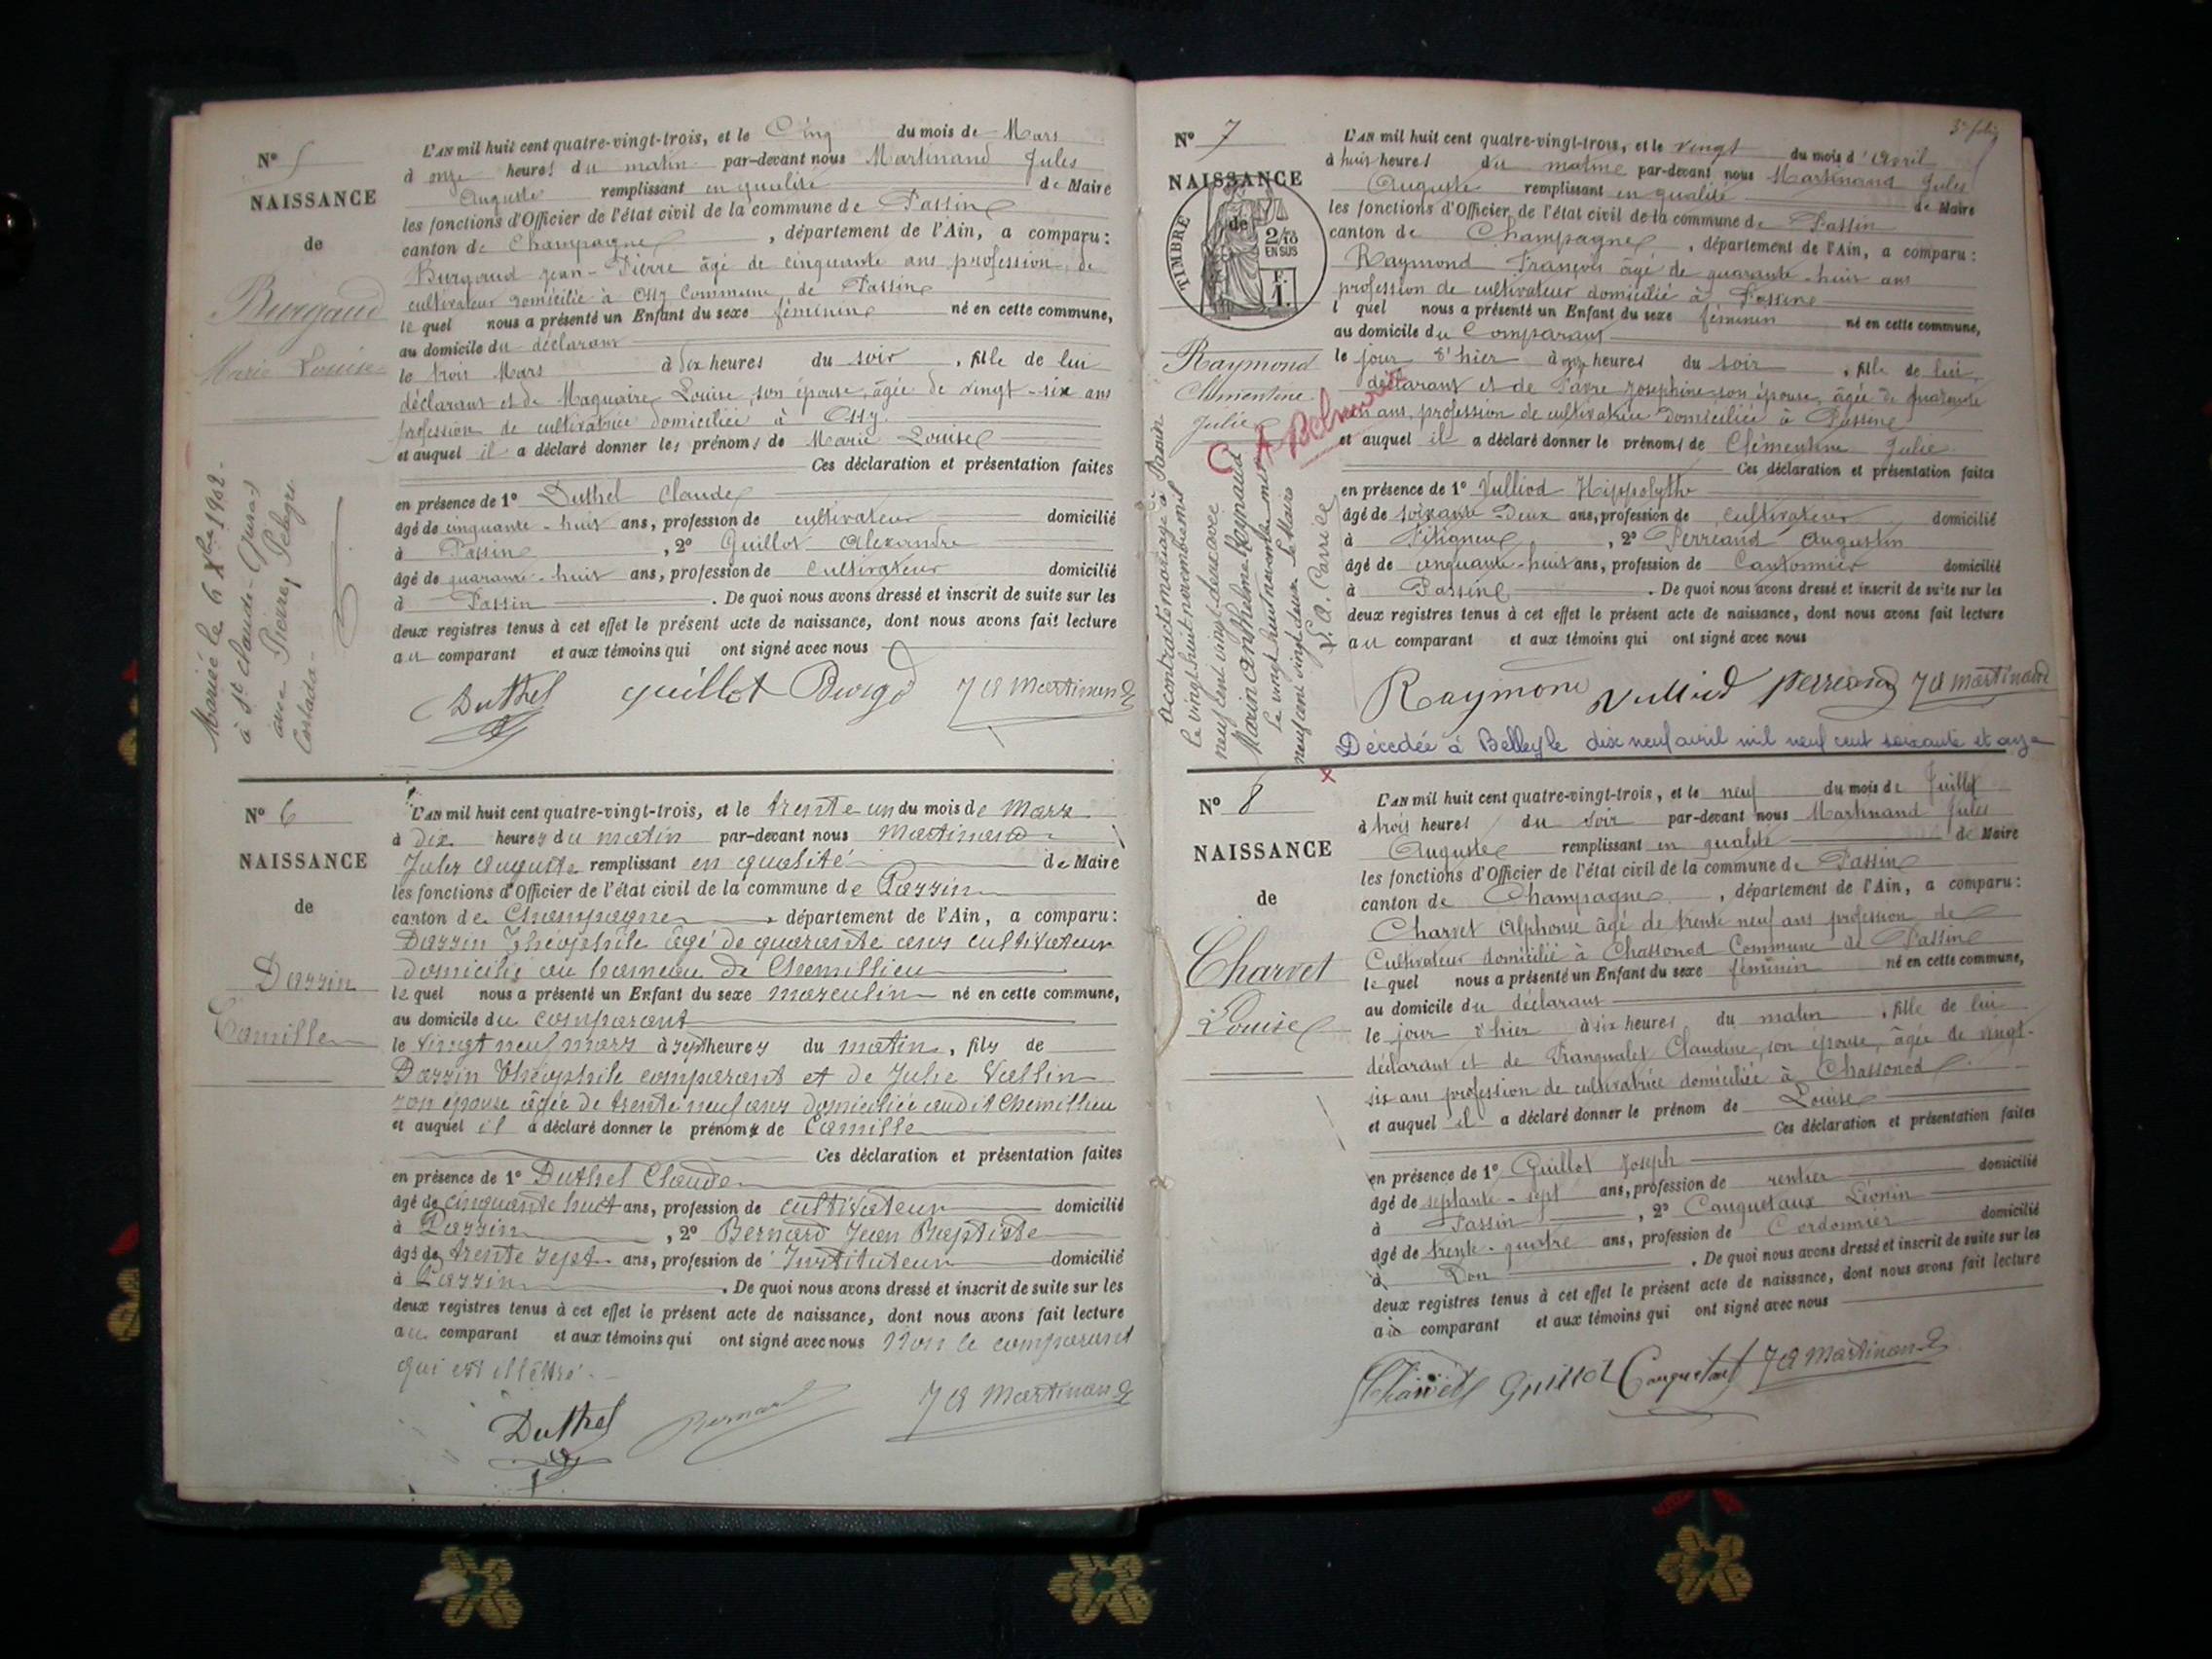 N° 5
NAISSANCE
de
Burgaud
Marie Louise
Mariée le 6 Xbre 1902
à St Claude (Jura)
avec Pierre, Pelagre
L'AN mil huit cent quatre-vingt-trois, et le Cinq du mois de Mars
à onze heures du matin par-devant nous Martinand Jules
Auguste remplissant en qualité de Maire
les fonctions d'Officier de l'état civil de la commune de Passin
canton de Champagne, département de l'Ain, a comparu:
Burgaud Jean-Pierre âgé de cinquante ans profession de
cultivateur domicilié à Ossy Commune de Passin
lequel nous a présenté un Enfant du sexe féminin né en cette commune,
au domicile du déclarant
le trois Mars à dix heures du soir, fille de lui
déclarant et de Maquaire Louise, son épouse, âgée de vingt-six ans
profession de cultivatrice domiciliée à Ossy
et auquel il a déclaré donner les prénoms de Marie Louise
Ces déclaration et présentation faites
en présence de 1° Duthel Claude
âgé de cinquante-huit ans, profession de cultivateur domicilié
à Passin, 2° Guillot Alexandre
âgé de quarante-huit ans, profession de cultivateur domicilié
à Passin. De quoi nous avons dressé et inscrit de suite sur les
deux registres tenus à cet effet le présent acte de naissance, dont nous avons fait lecture
au comparant et aux témoins qui ont signé avec nous
Duthel guillot Burgd J A Martinand
N° 6
NAISSANCE
de
Dassin
Camille
L'AN mil huit cent quatre-vingt-trois, et le trente un du mois de Mars
à dix heures du matin par-devant nous Martinand
Jules Auguste remplissant en qualité de Maire
les fonctions d'Officier de l'état civil de la commune de Passin
canton de Champagne, département de l'Ain, a comparu:
Dassin Théophile âgé de quarante ans cultivateur
domicilié au hameau de Chemillieu
lequel nous a présenté un Enfant du sexe masculin né en cette commune,
au domicile du comparant
le vingt neuf mars à sept heures du matin, fils de
Dassin Théophile comparant et de Julie Vallin
son épouse âgée de trente neuf ans domiciliée audit Chemillieu
et auquel il a déclaré donner le prénoms de Camille
Ces déclaration et présentation faites
en présence de 1° Duthel Claude
âgé de cinquante huit ans, profession de cultivateur domicilié
à Passin, 2° Bernard Jean Baptiste
âgé de trente sept ans, profession de Instituteur domicilié
à Passin. De quoi nous avons dressé et inscrit de suite sur les
deux registres tenus à cet effet le présent acte de naissance, dont nous avons fait lecture
au comparant et aux témoins qui ont signé avec nous Non le comparant
qui est illettré.
Duthel Bernard J A Martinand
3e folio
N° 7
NAISSANCE
de
TIMBRE
2/10
EN SUS
F.
1.
Raymond
Clémentine
Julie
a contracté mariage à Passin
le vingt huit novembre mil
neuf cent vingt deux avec
Marin Anthelme Reynaud
le vingt huit novembre mil
neuf cent vingt deux le Maire
L'AN mil huit cent quatre-vingt-trois, et le vingt du mois d'Avril
à huit heures du matin par-devant nous Martinand Jules
Auguste remplissant en qualité de Maire
les fonctions d'Officier de l'état civil de la commune de Passin
canton de Champagne, département de l'Ain, a comparu:
Raymond François âgé de quarante-huit ans
profession de cultivateur domicilié à Passin
lequel nous a présenté un Enfant du sexe féminin né en cette commune,
au domicile du Comparant
le jour d'hier à onze heures du soir, fille de lui
déclarant et de Favre Josephine son épouse, âgée de quarante
un ans, profession de cultivatrice domiciliée à Passin
et auquel il a déclaré donner le prénoms de Clémentine Julie
Ces déclaration et présentation faites
en présence de 1° Vulliod Hippolythe
âgé de soixante-Deux ans, profession de cultivateur domicilié
à Fitigneu, 2° Perreand Augustin
âgé de cinquante-huit ans, profession de Cantonnier domicilié
à Passin. De quoi nous avons dressé et inscrit de suite sur les
deux registres tenus à cet effet le présent acte de naissance, dont nous avons fait lecture
au comparant et aux témoins qui ont signé avec nous
Raymond Vulliod perreand J A Martinand
Décedée à Belley le dix neuf avril mil neuf cent soixante et onze
N° 8
NAISSANCE
de
Charvet
Louise
L'AN mil huit cent quatre-vingt-trois, et le neuf du mois de Juillet
à trois heures du soir par-devant nous Martinand Jules
Auguste remplissant en qualité de Maire
les fonctions d'Officier de l'état civil de la commune de Passin
canton de Champagne, département de l'Ain, a comparu:
Charvet Alphonse âgé de trente neuf ans profession de
Cultivateur domicilié à Chassonod Commune de Passin
lequel nous a présenté un Enfant du sexe féminin né en cette commune,
au domicile du déclarant
le jour d'hier à six heures du matin, fille de lui
déclarant et de Tranqualet Claudine, son épouse, âgée de vingt-
six ans profession de cultivatrice domiciliée à Chassonod
et auquel il a déclaré donner le prénom de Louise
Ces déclaration et présentation faites
en présence de 1° Guillot Joseph
âgé de septante-sept ans, profession de rentier domicilié
à Passin, 2° Cauquetaux Léonin
âgé de trente-quatre ans, profession de Cordonnier domicilié
à Don. De quoi nous avons dressé et inscrit de suite sur les
deux registres tenus à cet effet le présent acte de naissance, dont nous avons fait lecture
au comparant et aux témoins qui ont signé avec nous
Charvet Guillot Cauquetaux J A Martinand